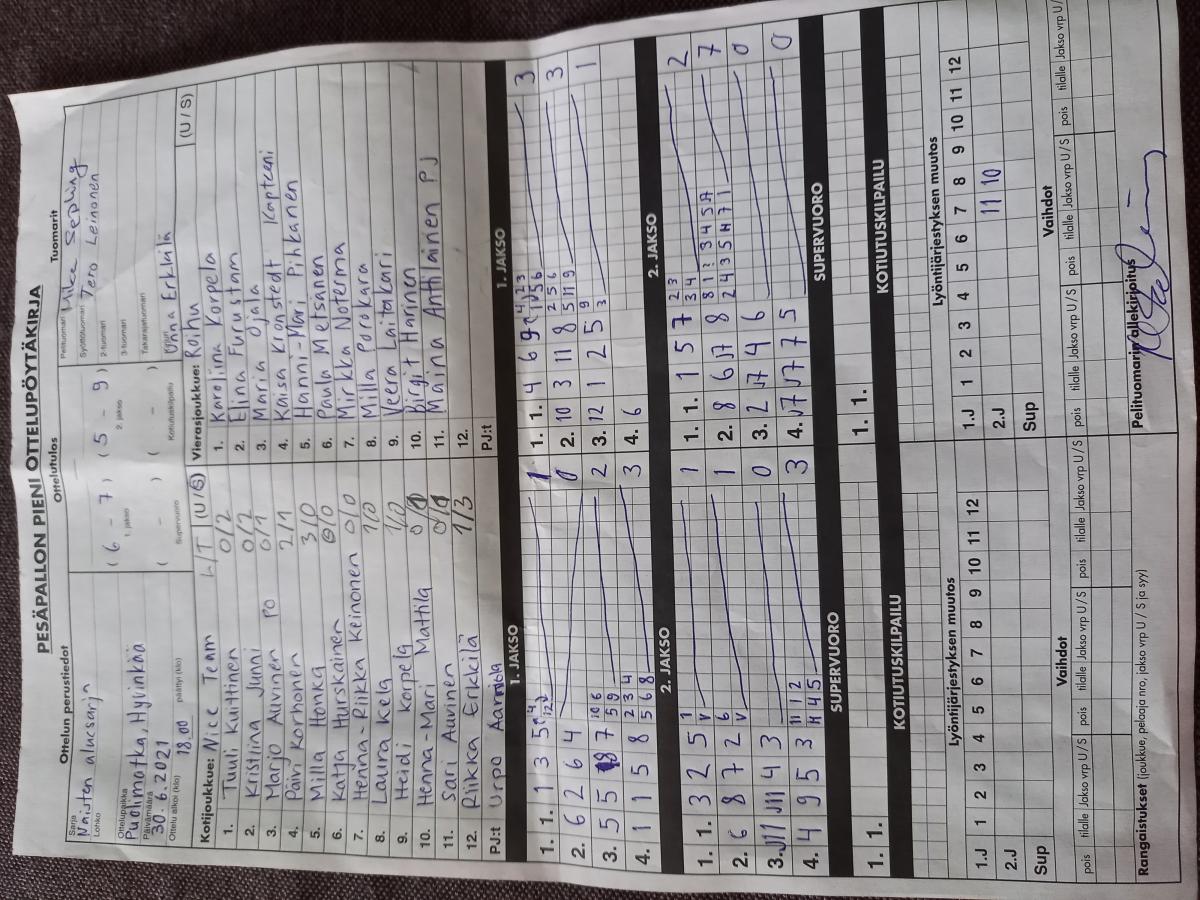 PESÄPALLON PIENI OTTELUPÖYTÄKIRJA
Ottelun perustiedot Ottelutulos Tuomarit
Sarja Naisten aluesarja
Lohko
Ottelupaikka Puolimatka, Hyvinkää
Päivämäärä 30.6.2021
Ottelu alkoi (klo) 18.00 päättyi (klo)
( 6 - 7 ) ( 5 - 9 )
1. jakso 2. jakso
( - ) ( - )
Supervuoro Kotiutuskilpailu
Pelituomari
Syöttötuomari Tero Leinonen
2-tuomari
3-tuomari
Takarajatuomari
Kirjuri Erkkilä
Kotijoukkue: Nice Team L/T (U/S)
1. Tuuli Kuittinen 0/2
2. Kristiina Junni 0/2
3. Marjo Auvinen PO 0/1
4. Päivi Korhonen 2/1
5. Milla Honka 3/0
6. Katja Hurskainen 0/0
7. Henna-Riikka Keinonen 0/0
8. Laura Kela 1/0
9. Heidi Korpela 1/0
10. Henna-Mari Mattila
11. Sari Auvinen
12. Riikka Erkkilä 1/3
PJ:t Urpo
Vierasjoukkue: Roihu (U/S)
1. Karolina Korpela
2. Elina Furustam
3. Maria Ojala
4. Kaisa Kronstedt Kapteeni
5. Hanni-Mari Pihkanen
6. Paula Metsänen
7. Mirkka Notermä
8. Milla Porokara
9. Veera Laitakari
10. Birgit Harinen
11. Maina Anttilainen PJ
12.
PJ:t
1. JAKSO
1. 1. 1 3 5
2. 6 2 6 4
3. 5 5 8 7 2
4. 1 1 5 8 3
2. JAKSO
1. 1. 3 2 5 1
2. 6 8 7 2 1
3. 4 3 0
4. 4 9 5 3 3
SUPERVUORO
1. 1.
KOTIUTUSKILPAILU
1. JAKSO
1. 1. 4 6 9 3
2. 10 3 11 8 3
3. 12 1 2 5 1
4. 6
2. JAKSO
1. 1. 1 5 7 2
2. 8 6 8 7
3. 2 4 6 0
4. 7 5 0
SUPERVUORO
1. 1.
KOTIUTUSKILPAILU
Lyöntijärjestyksen muutos
1.J 1 2 3 4 5 6 7 8 9 10 11 12
2.J
Sup
Vaihdot
pois tilalle Jakso vrp U/S pois tilalle Jakso vrp U/S pois tilalle Jakso vrp U/S
Lyöntijärjestyksen muutos
1.J 1 2 3 4 5 6 7 8 9 10 11 12
2.J 11 10
Sup
Vaihdot
pois tilalle Jakso vrp U/S pois tilalle Jakso vrp U/S pois tilalle Jakso vrp U/
Rangaistukset (joukkue, pelaaja nro, jakso vrp U / S ja syy)
Pelituomarin allekirjoitus